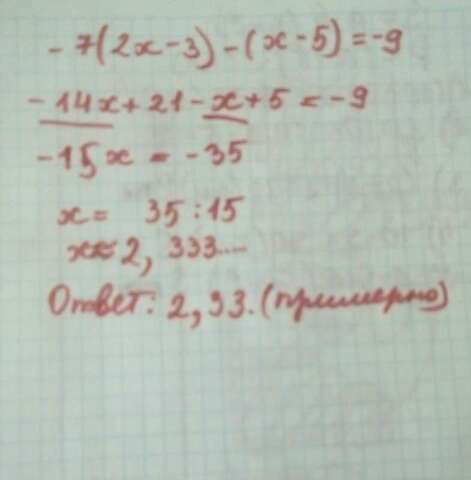 - 7(2x-3)-(x-5)=-9
- 14x+21-x+5=-9
-15x = -35
x= 35:15
x≈2, 333....
Ответ: 2,33. (примерно)